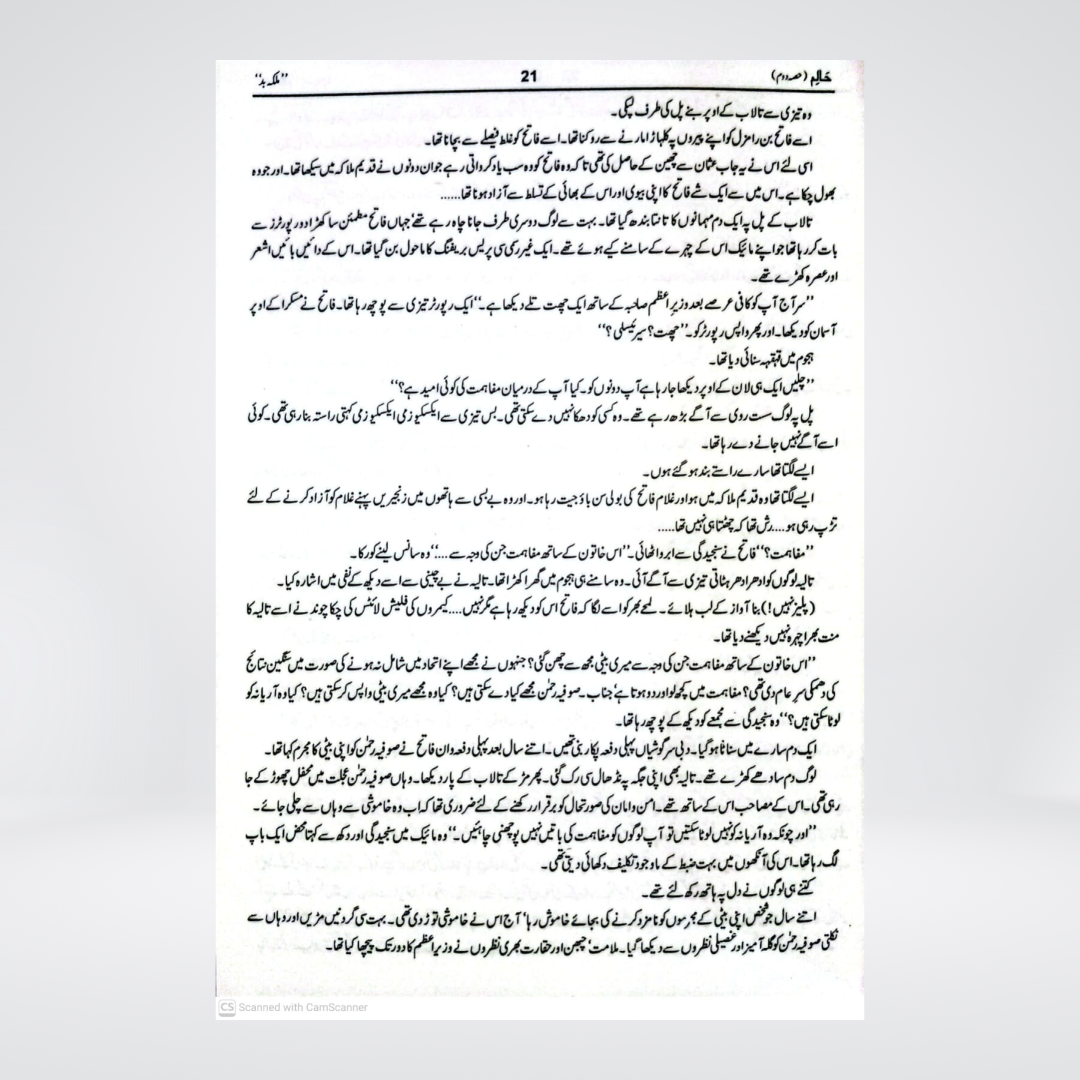 حَالِم (حصہ دوم) 21 ’’ملکہ بد‘‘
وہ تیزی سے تالاب کے اوپر بنے پل کی طرف لپکی۔
اسے فاتح بن رامزل کو اپنے پیروں پہ کلہاڑا مارنے سے روکنا تھا۔ اسے فاتح کو غلط فیصلے سے بچانا تھا۔
اسی لئے اس نے یہ جاب عثمان سے چھین کے حاصل کی تھی تاکہ وہ فاتح کو وہ سب یاد کرواتی رہے جو ان دونوں نے قدیم ملاکہ میں سیکھا تھا۔ اور جو وہ
بھول چکا ہے۔ اس میں سے ایک شے فاتح کا اپنی بیوی اور اس کے بھائی کے تسلط سے آزاد ہونا تھا......
تالاب کے پل پہ ایک دم مہمانوں کا تانتا بندھ گیا تھا۔ بہت سے لوگ دوسری طرف جانا چاہ رہے تھے‘ جہاں فاتح مطمئن سا کھڑا دو رپورٹرز سے
بات کر رہا تھا جو اپنے مائیک اس کے چہرے کے سامنے کیے ہوئے تھے۔ ایک غیر رسمی سی پریس بریفنگ کا ماحول بن گیا تھا۔ اس کے دائیں بائیں اشعر
اور عصرہ کھڑے تھے۔
’’سر آج آپ کو کافی عرصے بعد وزیرِ اعظم صاحبہ کے ساتھ ایک چھت تلے دیکھا ہے۔‘‘ ایک رپورٹر تیزی سے پوچھ رہا تھا۔ فاتح نے مسکرا کے اوپر
آسمان کو دیکھا۔ اور پھر واپس رپورٹر کو۔ ’’چھت؟ سیرئیسلی؟‘‘
ہجوم میں قہقہہ سنائی دیا تھا۔
’’چلیں ایک ہی لان کے اوپر دیکھا جا رہا ہے آپ دونوں کو۔ کیا آپ کے درمیان مفاہمت کی کوئی امید ہے؟‘‘
پل پہ لوگ ست روی سے آگے بڑھ رہے تھے۔ وہ کسی کو دھکا نہیں دے سکتی تھی۔ بس تیزی سے ایکسکیوزمی ایکسکیوزمی کہتی راستہ بنا رہی تھی۔ کوئی
اسے آگے نہیں جانے دے رہا تھا۔
ایسے لگتا تھا سارے راستے بند ہو گئے ہوں۔
ایسے لگتا تھا وہ قدیم ملاکہ میں ہو اور غلام فاتح کی بولی سن باؤ جیت رہا ہو۔ اور وہ بے بسی سے ہاتھوں میں زنجیریں پہنے غلام کو آزاد کرنے کے لئے
تڑپ رہی ہو....رش تھا کہ چھٹتا ہی نہیں تھا.....
’’مفاہمت؟‘‘ فاتح نے سنجیدگی سے ابرو اٹھائی۔ ’’اس خاتون کے ساتھ مفاہمت جن کی وجہ سے....‘‘ وہ سانس لینے کو رکا۔
تالیہ لوگوں کو ادھر ادھر ہٹاتی تیزی سے آگے آئی۔ وہ سامنے ہی ہجوم میں گھرا کھڑا تھا۔ تالیہ نے بے چینی سے اسے دیکھ کے نفی میں اشارہ کیا۔
(پلیز نہیں!) بنا آواز کے لب ہلائے۔ لمحے بھر کو اسے لگا کہ فاتح اس کو دیکھ رہا ہے مگر نہیں....کیمروں کی فلیش لائٹس کی چکا چوند نے اسے تالیہ کا
منت بھرا چہرہ نہیں دیکھنے دیا تھا۔
’’اس خاتون کے ساتھ مفاہمت جن کی وجہ سے میری بیٹی مجھ سے چھن گئی؟ جنہوں نے مجھے اپنے اتحاد میں شامل نہ ہونے کی صورت میں سنگین نتائج
کی دھمکی سرِ عام دی تھی؟ مفاہمت میں کچھ لو اور دو ہوتا ہے‘ جناب۔ صوفیہ رحمٰن مجھے کیا دے سکتی ہیں؟ کیا وہ مجھے میری بیٹی واپس کر سکتی ہیں؟ کیا وہ آریانہ کو
لوٹا سکتی ہیں؟‘‘ وہ سنجیدگی سے مجمعے کو دیکھ کے پوچھ رہا تھا۔
ایک دم سارے میں سناٹا ہو گیا۔ دبی سرگوشیاں پہلی دفعہ پکار بنی تھیں۔ اتنے سال بعد پہلی دفعہ وان فاتح نے صوفیہ رحمٰن کو اپنی بیٹی کا مجرم کہا تھا۔
لوگ دم سادھے کھڑے تھے۔ تالیہ بھی اپنی جگہ پہ نڈھال سی رک گئی۔ پھر مڑ کے تالاب کے پار دیکھا۔ وہاں صوفیہ رحمٰن عجلت میں محفل چھوڑ کے جا
رہی تھی۔ اس کے مصاحب اس کے ساتھ تھے۔ امن و امان کی صورتحال کو برقرار رکھنے کے لئے ضروری تھا کہ اب وہ خاموشی سے وہاں سے چلی جائے۔
’’اور چونکہ وہ آریانہ کو نہیں لوٹا سکتیں تو آپ لوگوں کو مفاہمت کی باتیں نہیں پوچھنی چاہئیں۔‘‘ وہ مائیک میں سنجیدگی اور دکھ سے کہتا محض ایک باپ
لگ رہا تھا۔ اس کی آنکھوں میں بہت ضبط کے باوجود تکلیف دکھائی دیتی تھی۔
کتنے ہی لوگوں نے دل پہ ہاتھ رکھ لئے تھے۔
اتنے سال جو شخص اپنی بیٹی کے مجرموں کو نامزد کرنے کی بجائے خاموش رہا‘ آج اس نے خاموشی توڑ دی تھی۔ بہت سی گردنیں مڑیں اور وہاں سے
نکلتی صوفیہ رحمٰن کو گلہ آمیز اور غصیلی نظروں سے دیکھا گیا۔ ملامت‘ چبھن اور حقارت بھری نظروں نے وزیرِ اعظم کا دور تک پیچھا کیا تھا۔
CS Scanned with CamScanner